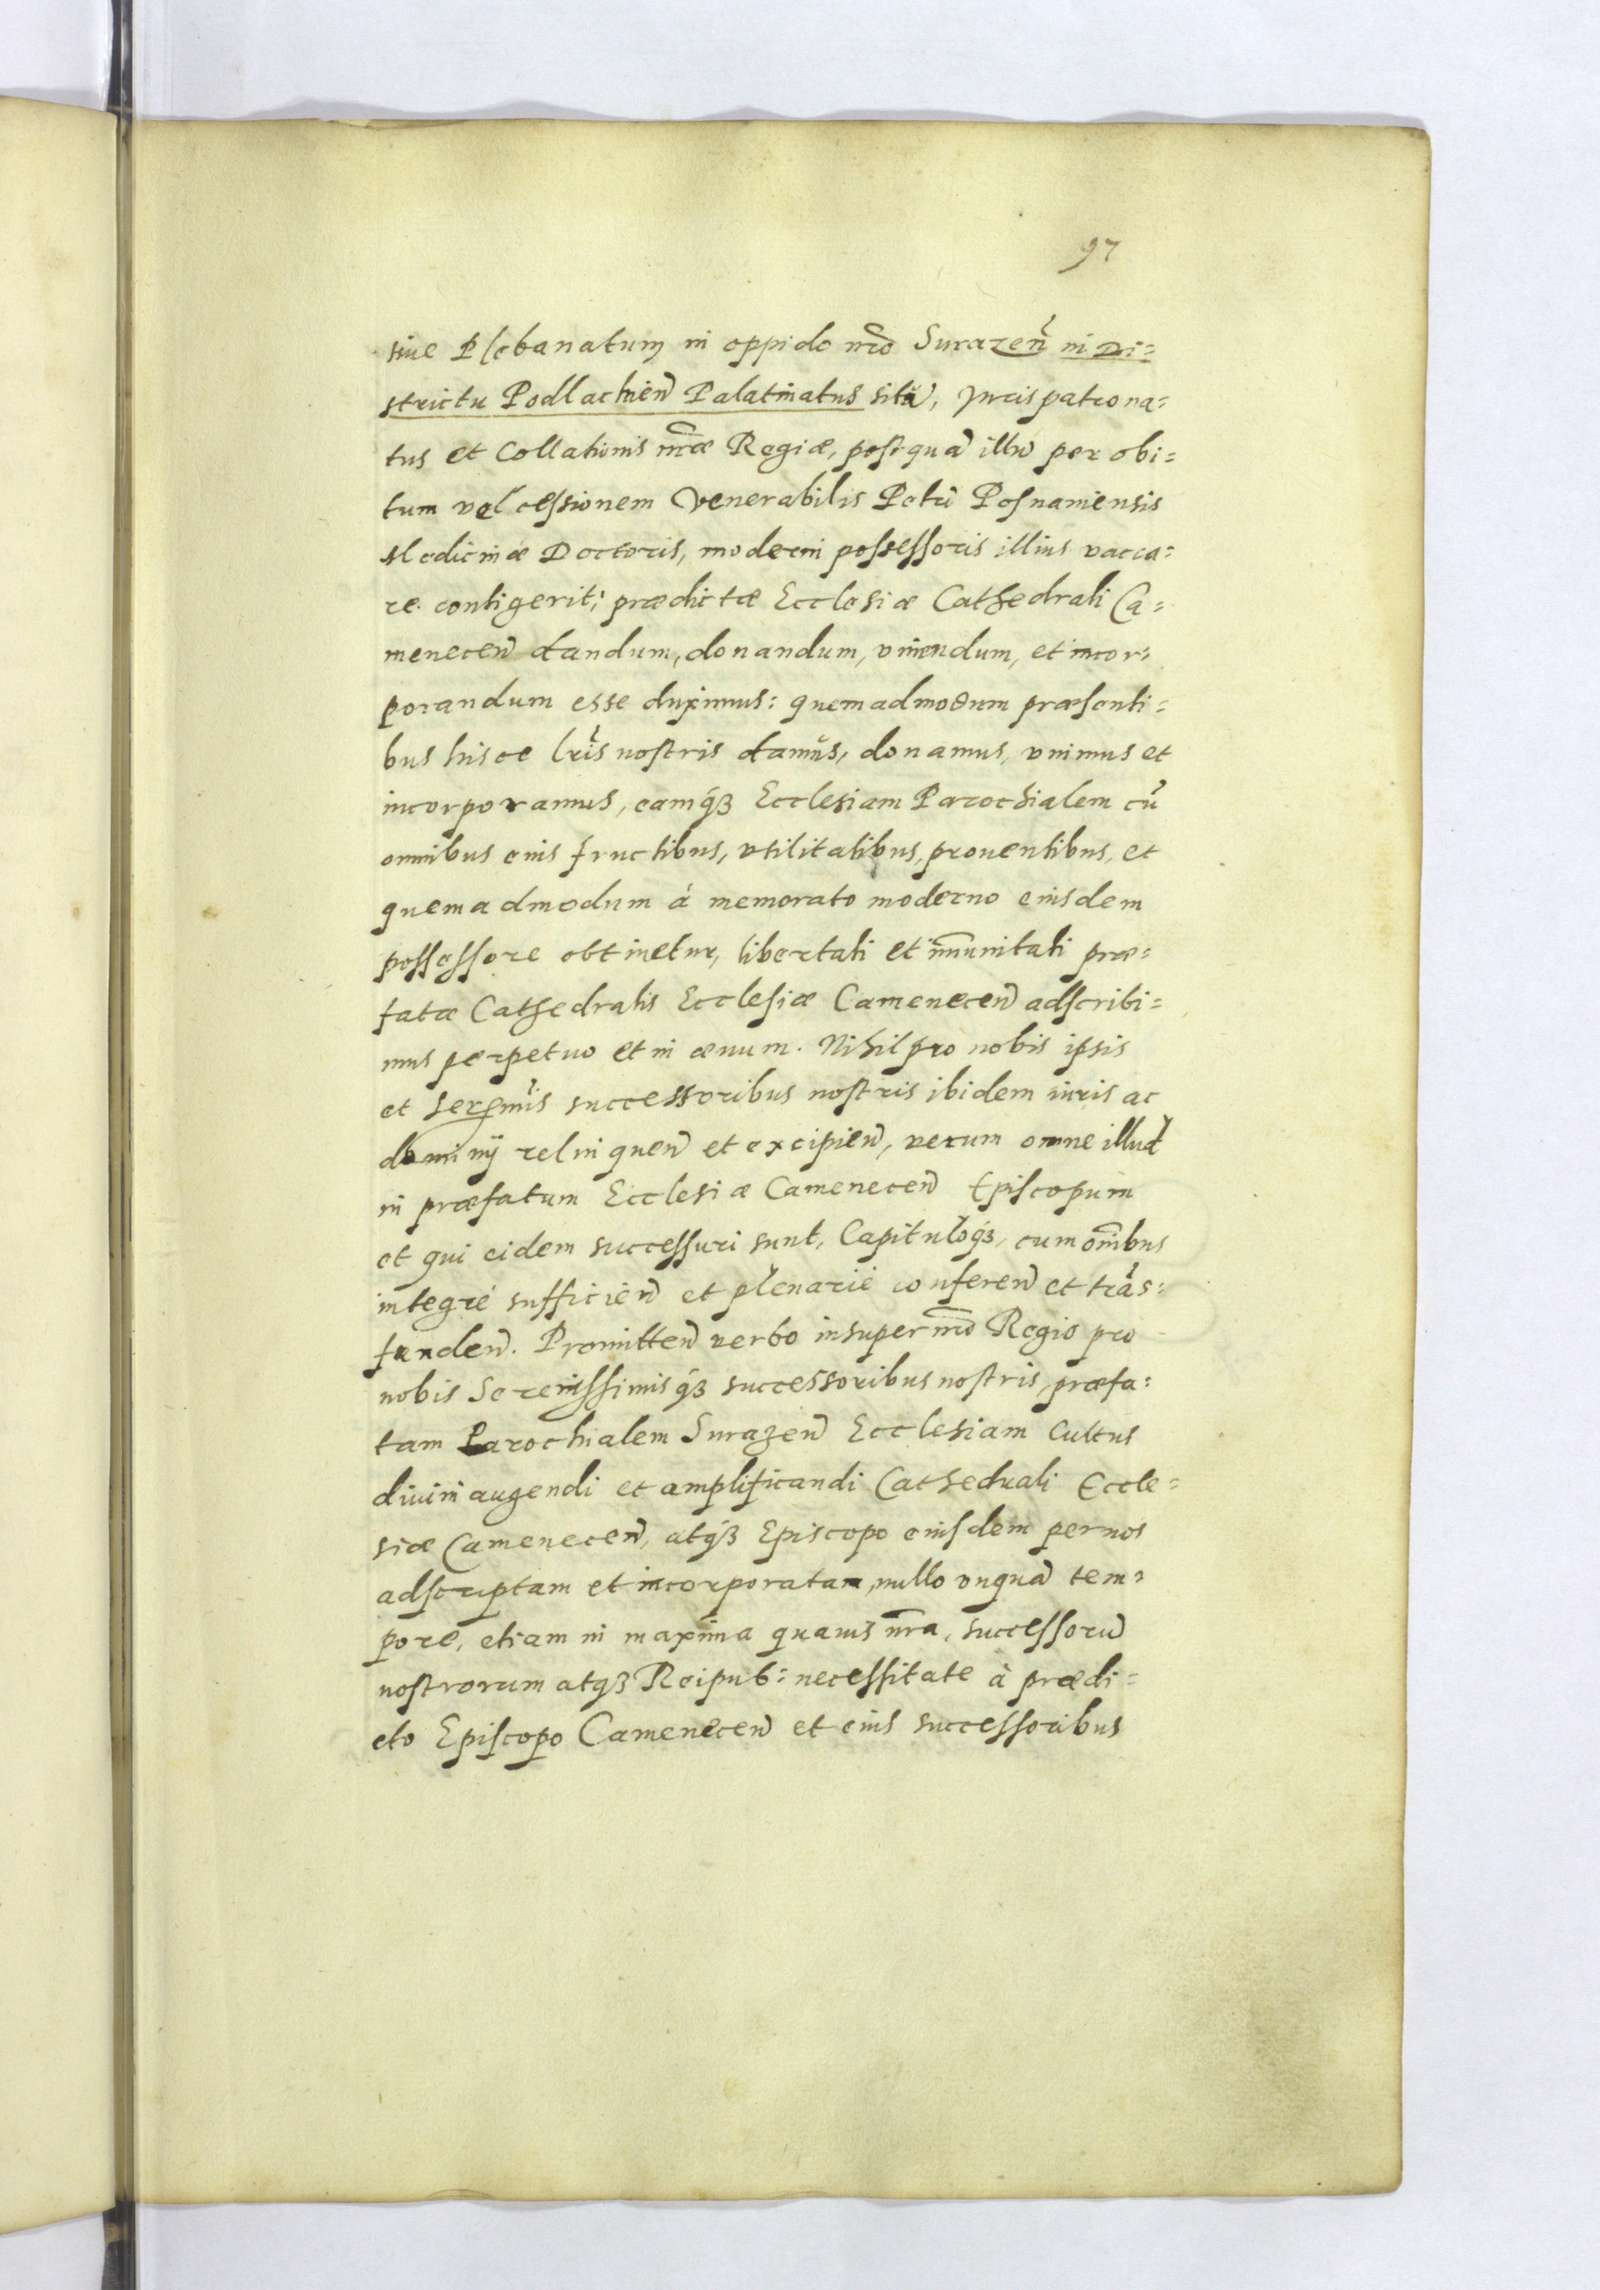 97
siue Plebanatum in oppido nr̃o Surazeñ in Di=
strictu Podlachieñ Palatinatus sitũ, Juris patrona=
tus et Collationis nr̃æ Regiæ, postquã illũ per obi=
tum vel cessionem Venerabilis Petri Posnaniensis
Medicinæ Doctoris, moderni possessoris illius vacca=
re contigerit; prædictæ Ecclesiæ Cathedrali Ca=
meneceñ dandum, donandum, vniendum, et incor=
porandum esse duximus: quemadmodum præsenti=
bus hisce lr̃is nostris damus, donamus, vnimus et
incorporamus, eamq́ꝫ Ecclesiam Parochialem cũ
omnibus eius fructibus, vtilitatibus, prouentibus, et
quemadmodum à memorato moderno eiusdem
possessore obtinetur, libertati et im̃unitati præ=
fatæ Cathedralis Ecclesiæ Cameneceñ adscribi=
mus perpetuo et in æuum. Nihil pro nobis ipsis
et Serẽmis successoribus nostris ibidem iuris ac
dominij relinqueñ et excipieñ, verum omne illud
in præfatum Ecclesiæ Cameneceñ Episcopum
et qui eidem successuri sunt, Capituloq́ꝫ, cum om̃ibus
integrè sufficieñ et plenariè confereñ et trãs=
fundeñ. Promitteñ verbo insuper nr̃o Regio pro
nobis Serenissimisq́ꝫ successoribus nostris, præfa=
tam Parochialem Surazeñ Ecclesiam Cultus
diuini augendi et amplificandi Cathedrali Eccle=
siæ Cameneceñ, atq́ꝫ Episcopo eiusdem per nos
adscriptam et incorporatam, nullo vnquã tem=
pore, etiam in maxima quauis nr̃a, successorũ
nostrorum atqꝫ Reipub: necessitate à prædi=
cto Episcopo Cameneceñ et eius successoribus